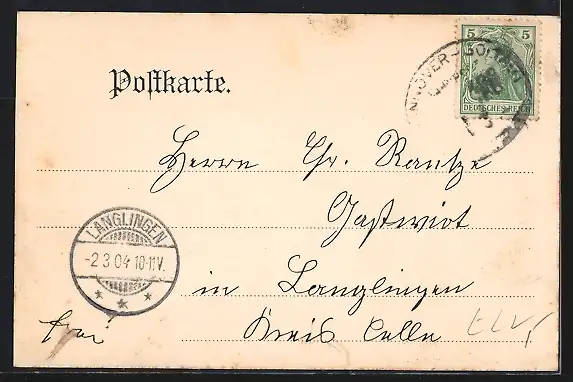 5 5
DEUTSCHES REICH
Postkarte.
Herrn Chr. Rautze
Gastwirt
LANGLINGEN
-2.3.04 10-11V.
in Langlingen
frei
Kreis Celle